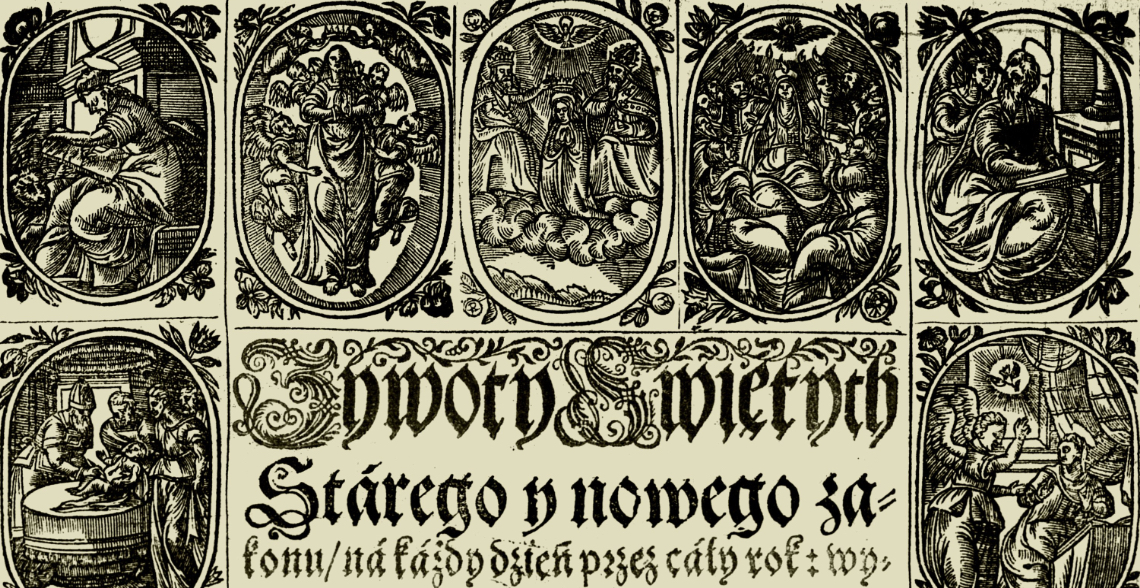 Żywoty Swiętych
Stárego y nowego za⸗
konu/ ná káżdy dzień przez cáły rok: wy⸗